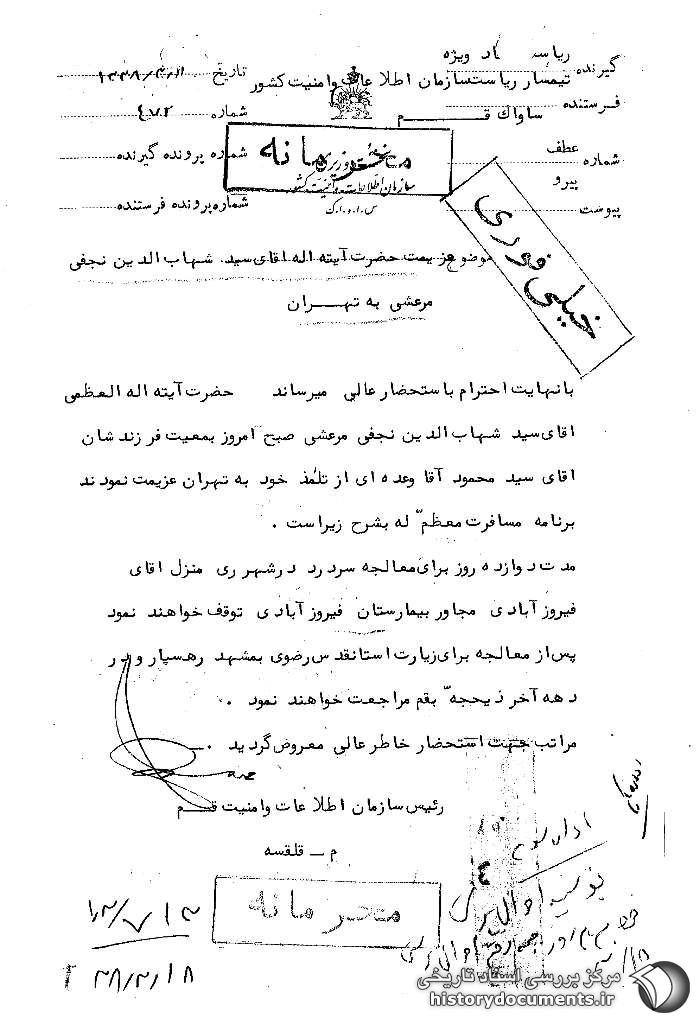 ریاست ویژه
گیرنده تیمسار ریاست سازمان اطلاعات و امنیت کشور
تاریخ
فرستنده ساواک قم
شماره ۴۷۲
نخست وزیری
محرمانه
سازمان اطلاعات و امنیت کشور
س.ا.و.ا.ک
شماره
عطف
پیرو
پیوست
شماره پرونده گیرنده
شماره پرونده فرستنده
خیلی فوری
موضوع عزیمت حضرت آیته اله آقای سید شهاب الدین نجفی
مرعشی به تهران
با نهایت احترام باستحضار عالی میرساند حضرت آیته اله العظمی
آقای سید شهاب الدین نجفی مرعشی صبح امروز بمعیت فرزندشان
آقای سید محمود آقا وعده ای از تلمذ خود به تهران عزیمت نمودند
برنامه مسافرت معظم له بشرح زیر است .
مدت دوازده روز برای معالجه سردرد در شهر ری منزل آقای
فیروزآبادی مجاور بیمارستان فیروزآبادی توقف خواهند نمود
پس از معالجه برای زیارت استانقدس رضوی بمشهد رهسپار و در
دهه آخر ذیحجه بقم مراجعت خواهند نمود .
مراتب جهت استحضار خاطر عالی معروض گردید .
رئیس سازمان اطلاعات و امنیت قم
م - قلقسه
اداره سوم
محرمانه
۳۸/۲/۱۸
مرکز بررسی اسناد تاریخی
historydocuments.ir